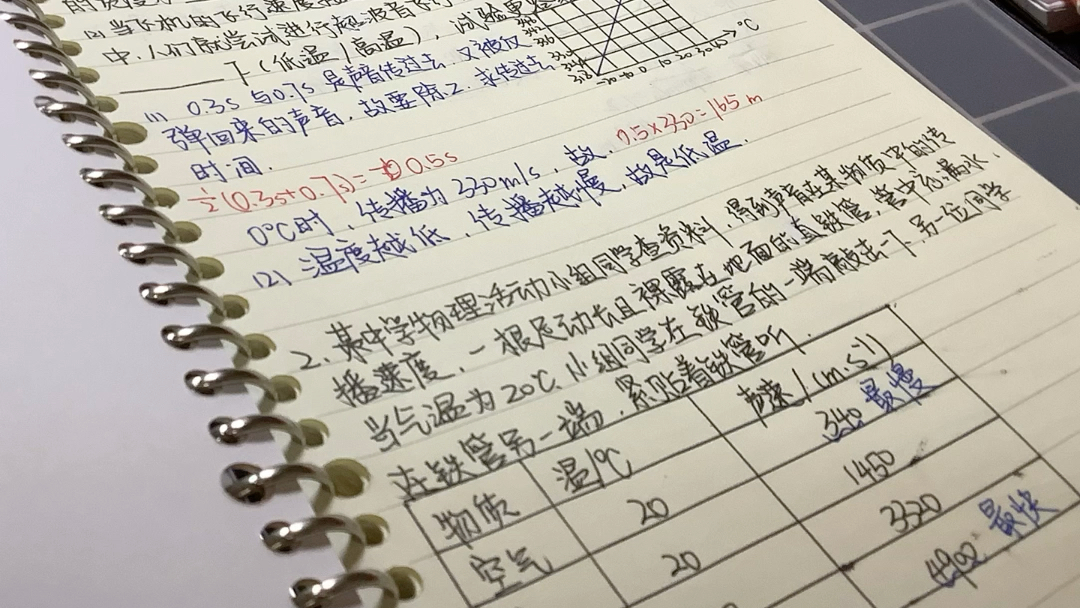 (2) 当飞机的飞行速度
中，人们就尝试进行超波音飞行
____下(低温/高温)，试验更
°C
-20 -10 0 10 20 30
(1) 0.3s与0.7s是声音传过去，又被仪
弹回来的声音，故要除2. 求传过去
时间.
½(0.3s+0.7s)=0.5s
0°C时，传播为330m/s，故 0.5×330=165m
(2) 温度越低，传播越慢，故是低温.
2. 某中学物理活动小组同学查资料，得到声音在某物质中的传
播速度，一根足动长且裸露在地面的直铁管，管中充满水.
当气温为20℃，小组同学在铁管的一端敲击一下，另一位同学
在铁管另一端，紧贴着铁管听.
物质 温/℃ 声速/(m.s⁻¹)
空气 20 340 最慢
20 1450
3320
最快